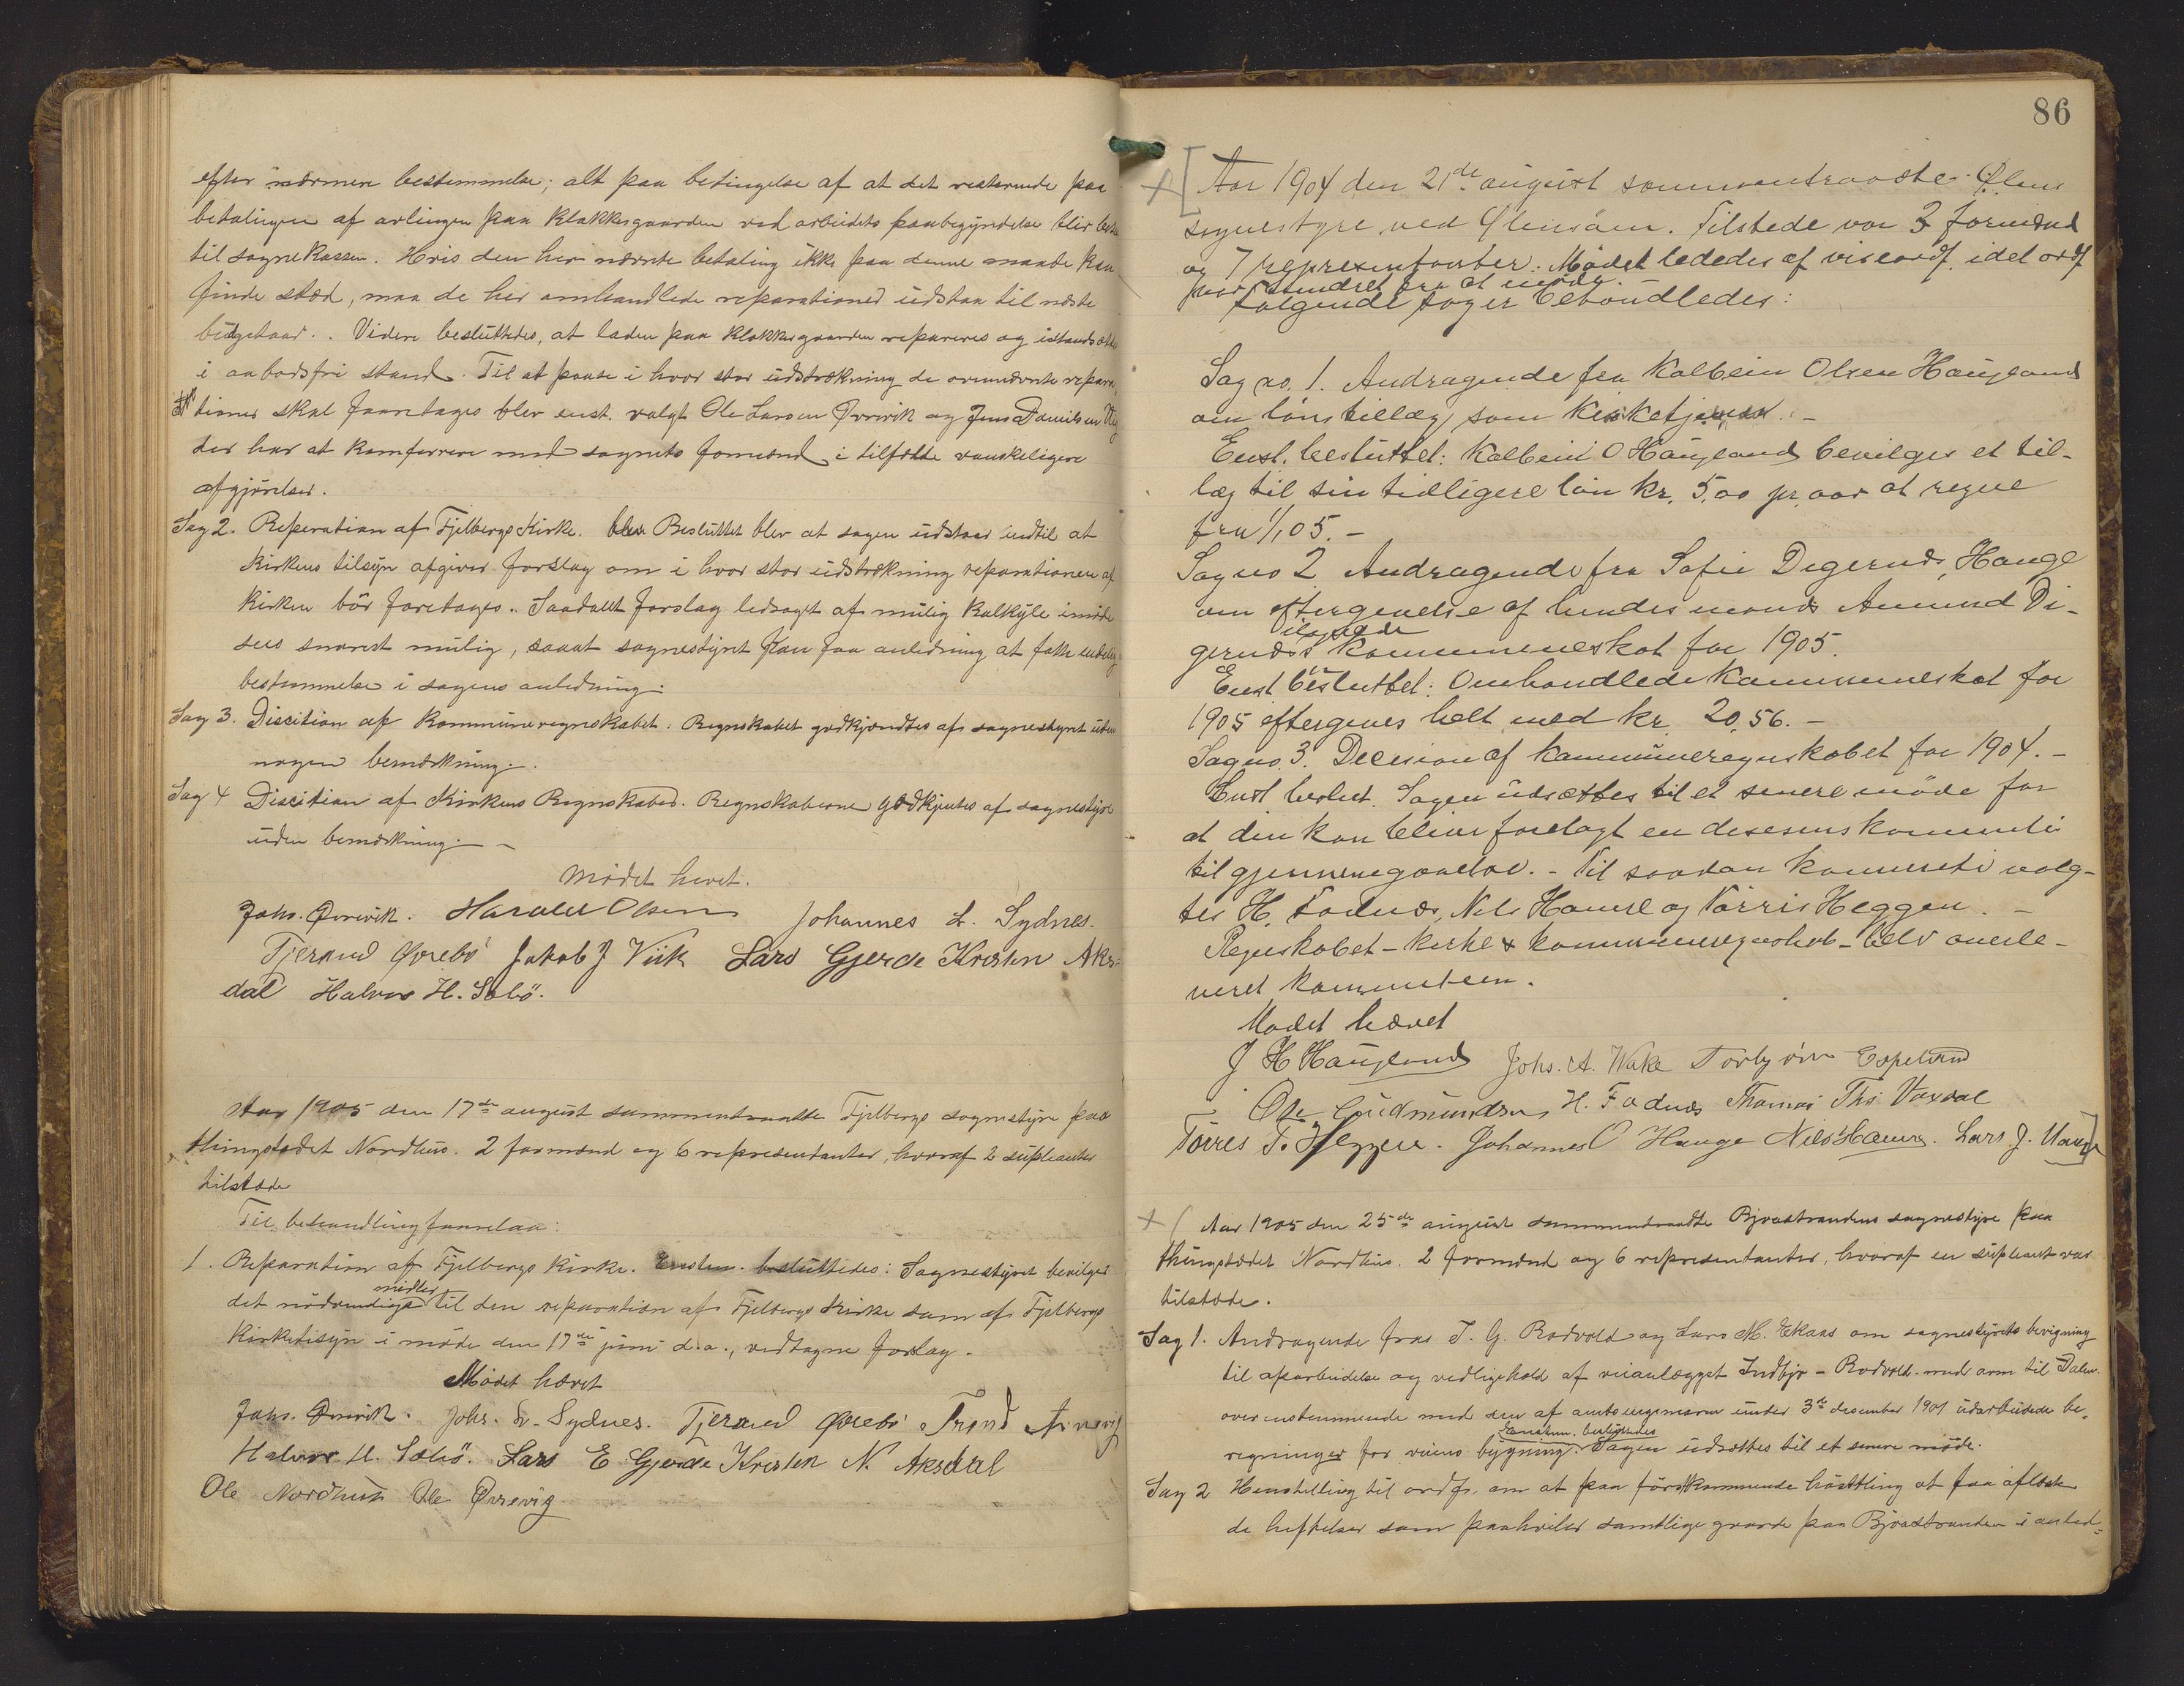 efter nærmere bestemmelse; alt paa betingelse af at det resterende paa
betalingen af avlingen paa Klokkergaarden ved arbeidets paabegyndelse blir
til sognekassen. Hvis den her nævnte betaling ikke paa denne maade kan
finde sted, maa de her omhandlede reparationer udstaa til næste
budgetaar. Videre besluttedes, at laden paa Klokkergaarden repareres og
i aabodsfri stand. Til at paase i hvor stor udstrækning de ovennævnte repara-
tioner skal foaretages blev enst. valgt Ole Larsen Øvrevik og Jens Danielsen
der har at komferere med sognets formænd i tilfælde vanskeligere
afgjørelser.
Sag 2. Reperation af Fjelbergs Kirke. blev Besluttet blev at sagen udstaar indtil at
Kirkens tilsyn afgiver forslag om i hvor stor udstrækning reparationen af
Kirken bör foretages. Saadant forslag ledsaget af mulig Kalkyle imöde
sees snarest mulig, saaat sognestyret Kan faa anledning at fatte endelig
bestemmelse i sagens anledning.
Sag 3. Discition af Kommuneregnskabet. Regnskabet godkjendtes af sognestyret uden
nogen bemærkning.
Sag 4 Discition af Kirkens Regnskaber. Regnskaberne godkjentes af sognestyre
uden bemærkning. –
Mødet hevet.
Johs. Øvrevik. Harald Olsen Johannes L. Sydnes.
Tjerand Øvrebö Jakob J Viik Lars Gjerde Kristen Aks=
dal Halvor H. Sæbö.
Aar 1905 den 17de august sammentraadte Fjelbergs sognestyre paa
thingstedet Nordhus. 2 formænd og 6 representanter, hvoraf 2 supleanter
tilstæde
Til behandling foarelaa:
1. Reparation af Fjelbergs Kirke. Enstem. besluttedes: Sognestyret bevilger
det nödvendige midler til den reparation af Fjelbergs Kirke som af Fjelbergs
Kirketilsyn i møde den 17de juni d.a., vedtagne forslag.
Mödet hævet
Johs. Øvrevik. Johs. L. Sydnes. Tjerand Øvrebö Trond
Halvor H. Sæbö. Lars E Gjerde Kristen N. Aksdal
Ole Nordhus Ole Øvrevig
86
Aar 1904 den 21de august sammentraadte Ølens
sognestyre ved Ølensöen. Tilstede var 3 formænd
og 7 representanter. Mødet lededes af viseordf. idet ordf
var hindret fra at møde.
Følgende sager behandledes:
Sag no. 1. Andragende fra Kolbein Olsen Haugland
om lönstillæg som Kirketjener. –
Enst. besluttet: Kolbein O Haugland bevilges et til-
læg til sin tidligere lön kr. 5,00 pr. aar at regne
fra 1/1 05. –
Sag no 2. Andragende fra Sofie Degernes, Hauge
om eftergivelse af hendes mands Amund Di-
gernes's ilagede kommuneskat for 1905.
Enst besluttet: Omhandlede Kommuneskat for
1905 eftergives helt med kr. 20,56. –
Sag no. 3. Decision af Kommuneregnskabet for 1904. –
Enst beslut. Sagen udsættes til et senere möde for
at den kan blive forelagt en desesions kommite
til gjennemgaaelse. – Til saadan kommite valg-
tes H. Fadnes, Nels Hamre og Törris Heggen. –
Regnskabet – kirke & kommuneregnskab – blev overle-
veret kommiteen.
Mødet hævet
J H Haugland Johs. A. Wake Torbjörn Espeland
Ole Gudmundsen H. Fadnes Thomas Ths Vaxdal
Törres T. Heggen. Johannes O Hauge Nels Hamre. Lars J. Hauge
Aar 1905 den 25de august sammentraadte Bjoastrandens sognestyre paa
thingstedet Nordhus. 2 formænd og 6 representanter, hvoraf en supleant var
tilstæde.
Sag 1. Andragende fra T. G. Rodvold og Lars M. Ekaas om sognestyrets bevigning
til oparbeidelse og vedligehold af veianlægget Indbjo – Rodvold. med arm til Dalen.
overensstemmende med den af amtsingeniøren under 3de desember 1901 udarbeidede be-
regninger for veiens bygning. Enstem. besluttedes Sagen udsættes til et senere möde.
Sag 2 Henstilling til ordf. om at paa förstkommende höstthing at faa aflöste
de heftelser som paahviler samtlige gaarde paa Bjoastranden i anled=